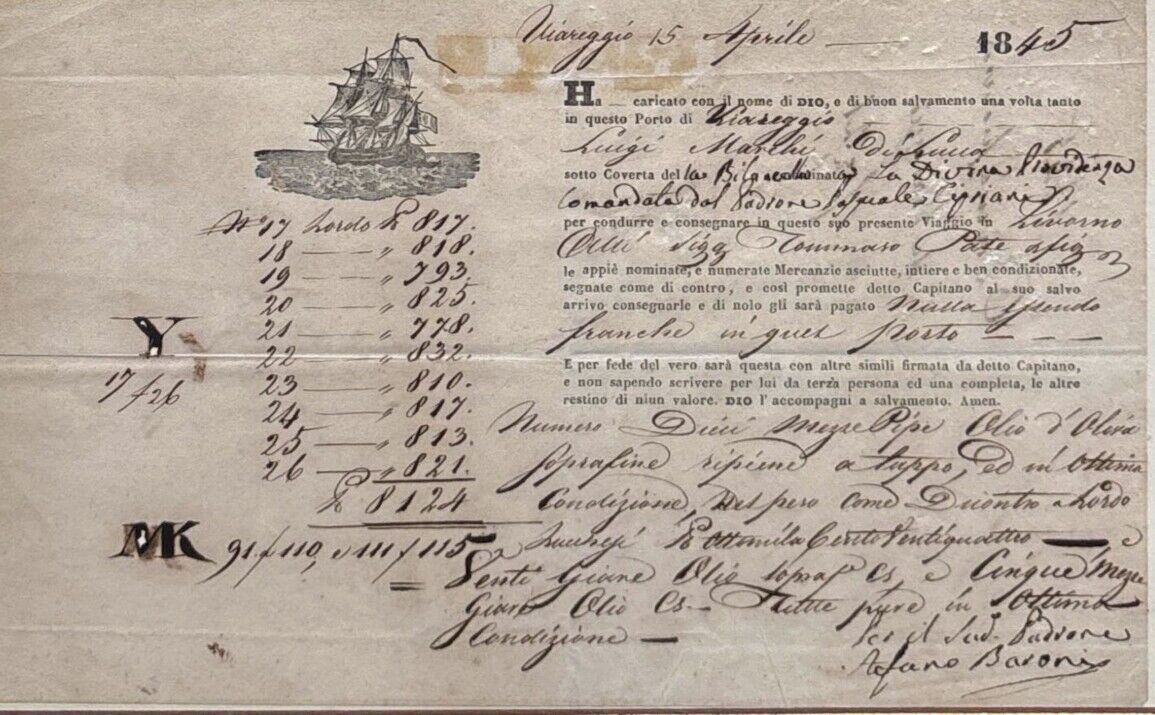 Viareggio 15 Aprile — 1845
Ha — caricato con il nome di DIO, e di buon salvamento una volta tanto
in questo Porto di Viareggio
Luigi Marchi di Lucca
sotto Coverta del la nominata La Divina Providenza
Comandata dal Padrone Pasquale Cipriani
per condurre e consegnare in questo suo presente Viaggio in Livorno
Sigg Tommaso Pate
le appiè nominate, e numerate Mercanzie asciutte, intiere e ben condizionate,
segnate come di contro, e così promette detto Capitano al suo salvo
arrivo consegnarle e di nolo gli sarà pagato Nulla essendo
franche in quel porto — — —
E per fede del vero sarà questa con altre simili firmata da detto Capitano,
e non sapendo scrivere per lui da terza persona ed una completa, le altre
restino di niun valore. DIO l'accompagni a salvamento. Amen.
N° 17 Lordo ℔ 817.
18 — „ 818.
19 — „ 793.
20 — „ 825.
21 — „ 778.
22 — „ 832.
23 — „ 810.
24 — „ 817.
25 — „ 813.
26 — „ 821.
℔ 8124
Y
17/26
MK 91/110, e 111/115
Numero Dieci Mezze Pipe Olio d'Oliva
soprafine ripiene a tappo, ed in Ottima
Condizione, del peso come Dicontro Lordo
Lucchesi ℔ Ottomila Cento Ventiquattro — e
Venti Giare Olio sopraf.e Cs, e Cinque Mezze
Giare Olio Cs — Tutte pure in Ottima
Condizione —
Per il Sud. Padrone
Stefano Baroni